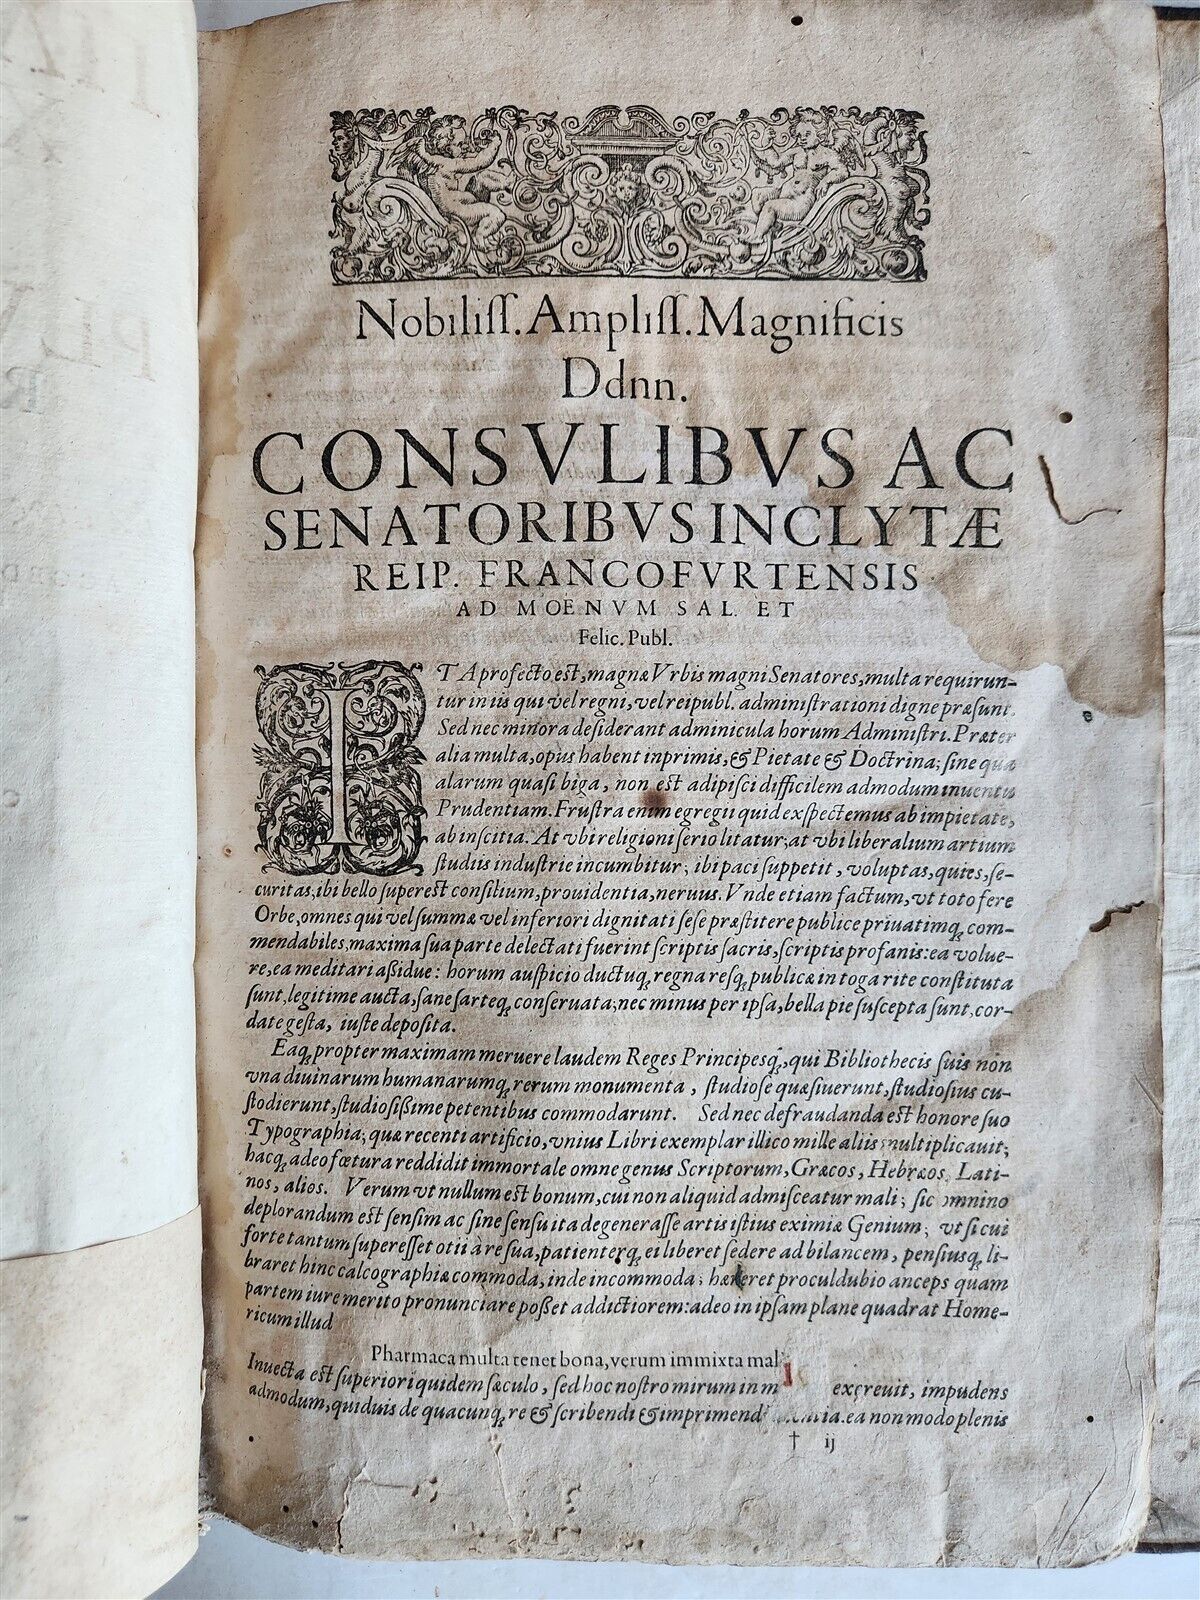 Nobiliſſ. Ampliſſ. Magnificis
Ddnn.
CONSVLIBVS AC
SENATORIBVS INCLYTÆ
REIP. FRANCOFVRTENSIS
AD MOENVM SAL. ET
Felic. Publ.
ITA profecto est, magnæ Vrbis magni Senatores, multa requirun-
tur in iis qui vel regni, vel reipubl. administrationi digne præsunt.
Sed nec minora desiderant adminicula horum Administri. Præter
alia multa, opus habent inprimis, & Pietate & Doctrina; sine qua
alarum quasi biga, non est adipisci difficilem admodum inuentu
Prudentiam. Frustra enim egregii quid exspectemus ab impietate,
ab inscitia. At vbi religioni serio litatur; at vbi liberalium artium
studiis industrie incumbitur; ibi paci suppetit, voluptas, quies, se-
curitas, ibi bello superest consilium, prouidentia, neruus. Vnde etiam factum, vt toto fere
Orbe, omnes qui vel summæ vel inferiori dignitati sese præstitere publice priuatimq́; com-
mendabiles, maxima sua parte delectati fuerint scriptis sacris, scriptis profanis: ea volue-
re, ea meditari aßidue: horum auspicio ductuq́; regna resq́; publicæ in toga rite constituta
sunt, legitime aucta, sane sarteq́; conseruata; nec minus per ipsa, bella pie suscepta sunt, cor-
date gesta, iuste deposita.
Eaq́; propter maximam meruere laudem Reges Principesq́;, qui Bibliothecis suis non
vna diuinarum humanarumq́; rerum monumenta, studiose quæsiuerunt, studiosius cu-
stodierunt, studiosißime petentibus commodarunt. Sed nec defraudanda est honore suo
Typographia; quæ recenti artificio, vnius Libri exemplar illico mille aliis multiplicauit;
hacq́; adeo fœtura reddidit immortale omne genus Scriptorum, Græcos, Hebræos, Lati-
nos, alios. Verum vt nullum est bonum, cui non aliquid admisceatur mali; sic omnino
deplorandum est sensim ac sine sensu ita degenerasse artis istius eximiæ Genium; vt si cui
forte tantum superesset otii à re sua, patienterq́; ei liberet sedere ad bilancem, pensiusq́; li-
braret hinc calcographiæ commoda, inde incommoda; hæreret proculdubio anceps quam
partem iure merito pronunciare poßet addictiorem: adeo in ipsam plane quadrat Home-
ricum illud
Pharmaca multa tenet bona, verum immixta mal
Inuecta est superiori quidem sæculo, sed hoc nostro mirum in m excreuit, impudens
admodum, quiduis de quacunq́; re & scribendi & imprimend ea non modo plenis
† ij